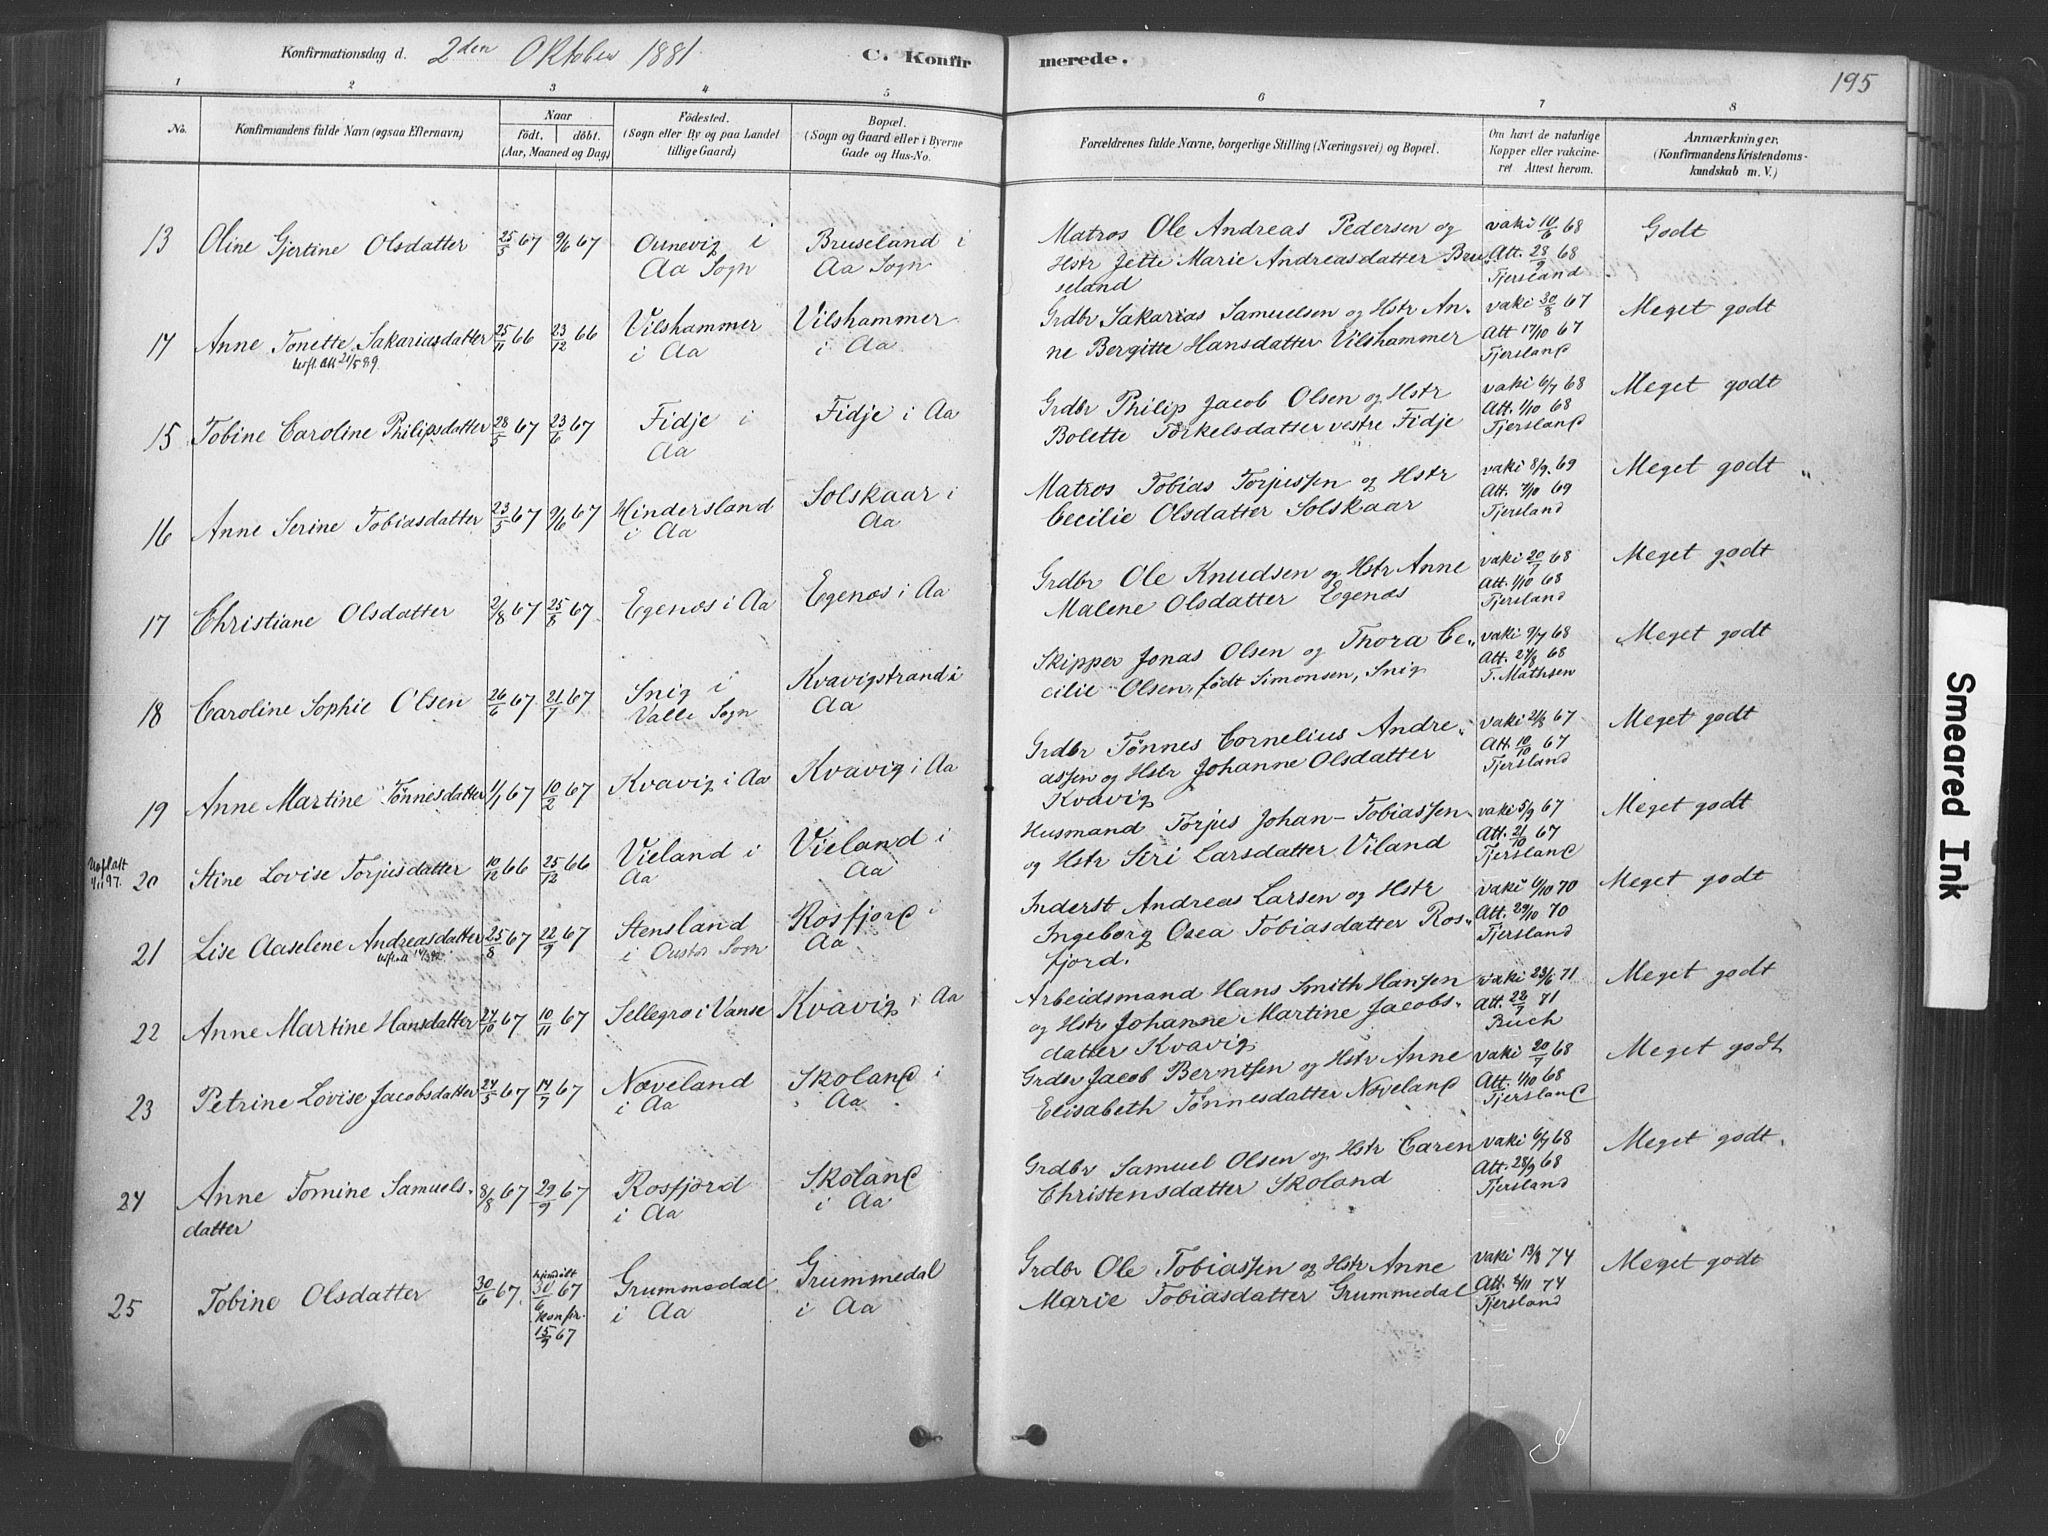 Konfirmationsdag d. 2den Oktober 1881. C. Konfirmerede. 195
1 2 3 4 5 6 7 8
No. Konfirmandens fulde Navn (ogsaa Efternavn) Naar født. døbt. (Aar, Maaned og Dag) Fødested. (Sogn eller By og paa Landet tillige Gaard) Bopæl. (Sogn og Gaard eller i Byerne Gade og Hus-No. Forældrenes fulde Navne, borgerlige Stilling (Næringsvei) og Bopæl. Om havt de naturlige Kopper eller vakcineret Attest herom. Anmærkninger. (Konfirmandens Kristendomskundskab m. V.)
13 Oline Gjertine Olsdatter 25/5 67 9/6 67 i Aa Sogn Bruseland i Aa Sogn
Matros Ole Andreas Pedersen og vaki 10/6 68 Godt
Hstr Jette Marie Andreasdatter Bru- Att. 28/9 68
seland Tjersland
17 Anne Tonette Sakariasdatter 25/11 66 23/12 66 Vilshammer i Aa Vilshammer i Aa
Grdbr Sakarias Samuelsen og Hstr An- vaki 30/8 67 Meget godt
ne Bergitte Hansdatter Vilshammer Att 17/10 67
Tjersland
15 Tobine Caroline Philipsdatter 28/5 67 23/6 67 Fidje i Aa Fidje i Aa
Grdbr Philip Jacob Olsen og Hstr vaki 6/7 68 Meget godt
Bolette Torkelsdatter vestre Fidje Att. 1/10 68
Tjersland
16 Anne Serine Tobiasdatter 23/5 67 9/6 67 Hindersland i Aa Solskaar i Aa
Matros Tobias Torjussen og Hstr vaki 8/9. 69 Meget godt "
Cecilie Olsdatter Solskaar Att. 7/10 69
Tjersland
17 Christiane Olsdatter 2/8 67 25/8 67 Egenæs i Aa Egenæs i Aa
Grdbr Ole Knudsen og Hstr Anne vaki 20/7 68 Meget godt
Malene Olsdatter Egenæs Att. 1/10 68
Tjersland
18 Caroline Sophie Olsen 26/6 67 21/7 67 Snig i Valle Sogn Kvavigstrand i Aa
Skipper Jonas Olsen og Thora Ce- vaki 9/7 68 Meget godt
cilie Olsen, født Simonsen, Snig Att. 27/8 68
T. Mathsen
19 Anne Martine Tønnesdatter 1/1 67 10/2 67 Kvavig i Aa Kvavig i Aa
Grdbr Tønnes Cornelius Andre- vaki 21/8 67 Meget godt
assen og Hstr Johanne Olsdatter Att. 10/10 67
Kvavig Tjersland
20 Stine Lovise Torjusdatter 10/12 66 25/12 66 Vieland i Aa Vieland i Aa
Husmand Torjus Johan-Tobiassen vaki 5/9 67 Meget godt
og Hstr Siri Larsdatter Viland Att. 21/10 67
Tjersland
21 Lise Aaselene Andreasdatter 25/8 67 22/9 67 Stensland i Sogn Rosfjord i Aa
Inderst Andreas Larsen og Hstr vaki 6/10 70 Meget godt
Ingeborg Osea Tobiasdatter Ros- Att. 29/10 70
fjord. Tjersland
22 Anne Martine Hansdatter 27/10 67 10/11 67 Sellegro i Vanse Kvavig i Aa
Arbeidsmand Hans Smith Hansen vaki 23/6 71 Meget godt
og Hstr Johanne Martine Jacobs- Att. 22/7 71
datter Kvavig Buch
23 Petrine Lovise Jacobsdatter 24/5 67 14/7 67 Nøveland i Aa Skoland i Aa
Grdbr Jacob Berntsen og Hstr Anne vaki 20/7 68 Meget godt
Elisabeth Tønnesdatter Nøveland Att. 1/10 68
Tjersland
24 Anne Tomine Samuels- 8/8 67 29/9 67 Rosfjord i Aa Skoland i Aa
datter
Grdbr Samuel Olsen og Hstr Caren vaki 6/7 68 Meget godt.
Christensdatter Skoland Att. 28/9 68
Tjersland
25 Tobine Olsdatter 30/6 67. hjemdøbt 30/6 67 Konfir. 15/9 67 Grummedal i Aa Grummedal i Aa
Grdbr Ole Tobiassen og Hstr Anne vaki 13/8 74 Meget godt
Marie Tobiasdatter Grummedal Att. 8/11 74
Tjersland
Smeared Ink